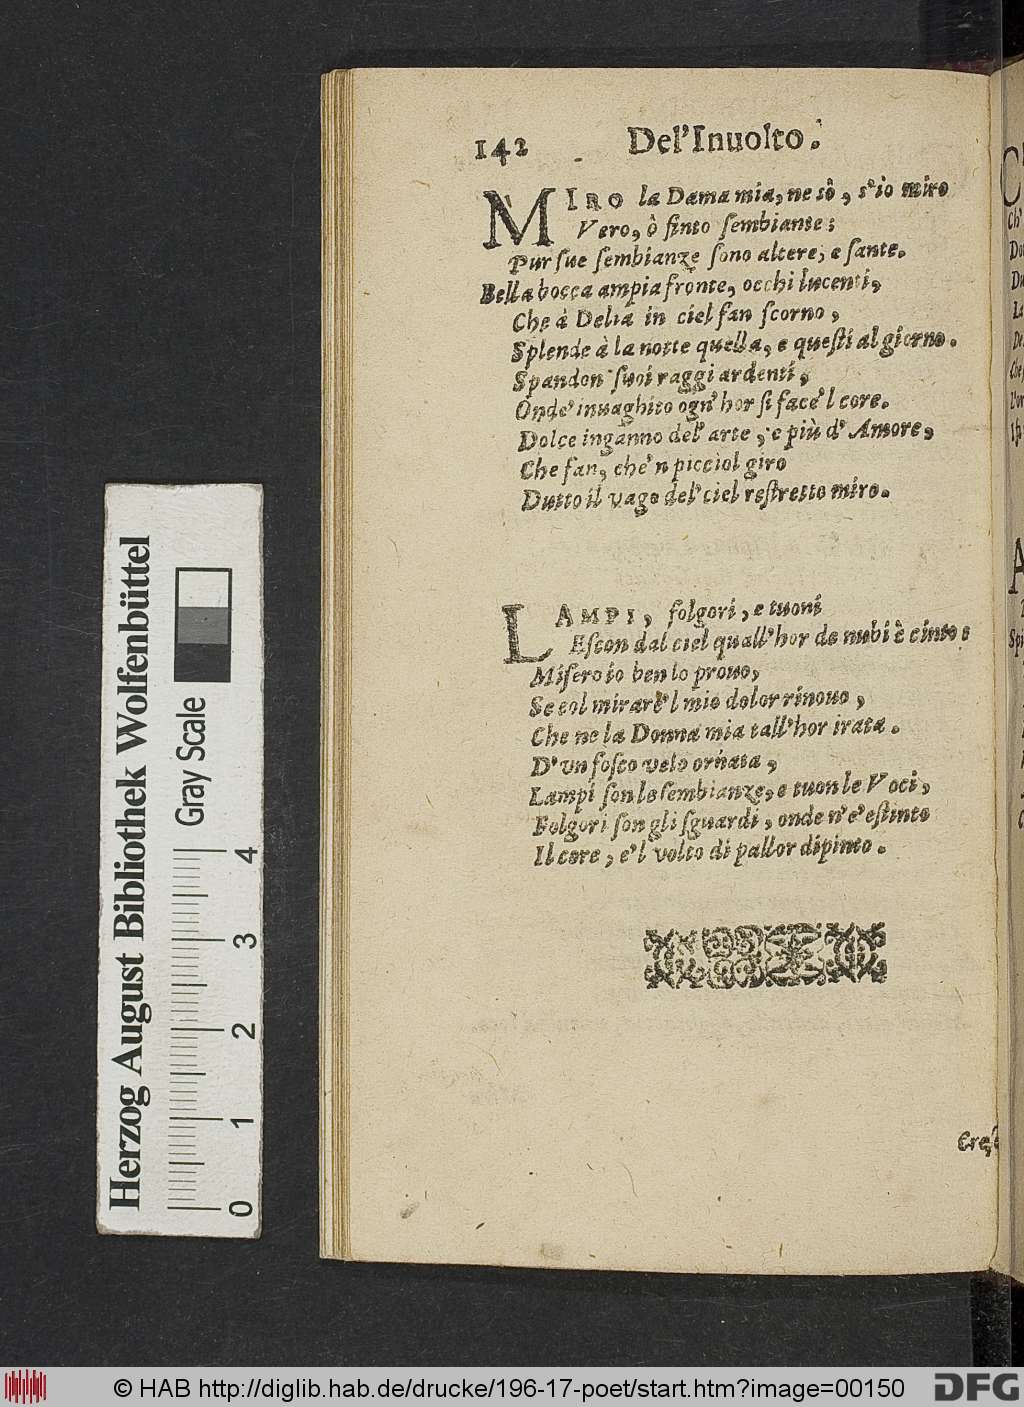 142 Del'Inuolto.
MIRO la Dama mia, ne sò, s'io miro
Vero, ò finto sembiante:
Pur sue sembianze sono altere, e sante.
Bella bocca ampia fronte, occhi lucenti,
Che à Delia in ciel fan scorno,
Splende à la notte quella, e questi al giorno.
Spandon suoi raggi ardenti,
Onde' inuaghito ogn'hor si face'l core.
Dolce inganno del' arte, e più d' Amore,
Che fan, che'n picciol giro
Dutto il vago del' ciel restretto miro.
LAMPI, folgori, e tuoni
Escon dal ciel quall'hor de nubi è cinto:
Misero io ben lo prouo,
Se col mirare'l mio dolor rinouo,
Che ne la Donna mia tall'hor irata.
D'vn fosco velo ornata,
Lampi son le sembianze, e tuon le Voci,
Folgori son gli sguardi, onde n'e' estinto
Il core, e'l volto di pallor dipinto.
Herzog August Bibliothek Wolfenbüttel
Gray Scale
0 1 2 3 4
© HAB http://diglib.hab.de/drucke/196-17-poet/start.htm?image=00150
DFG